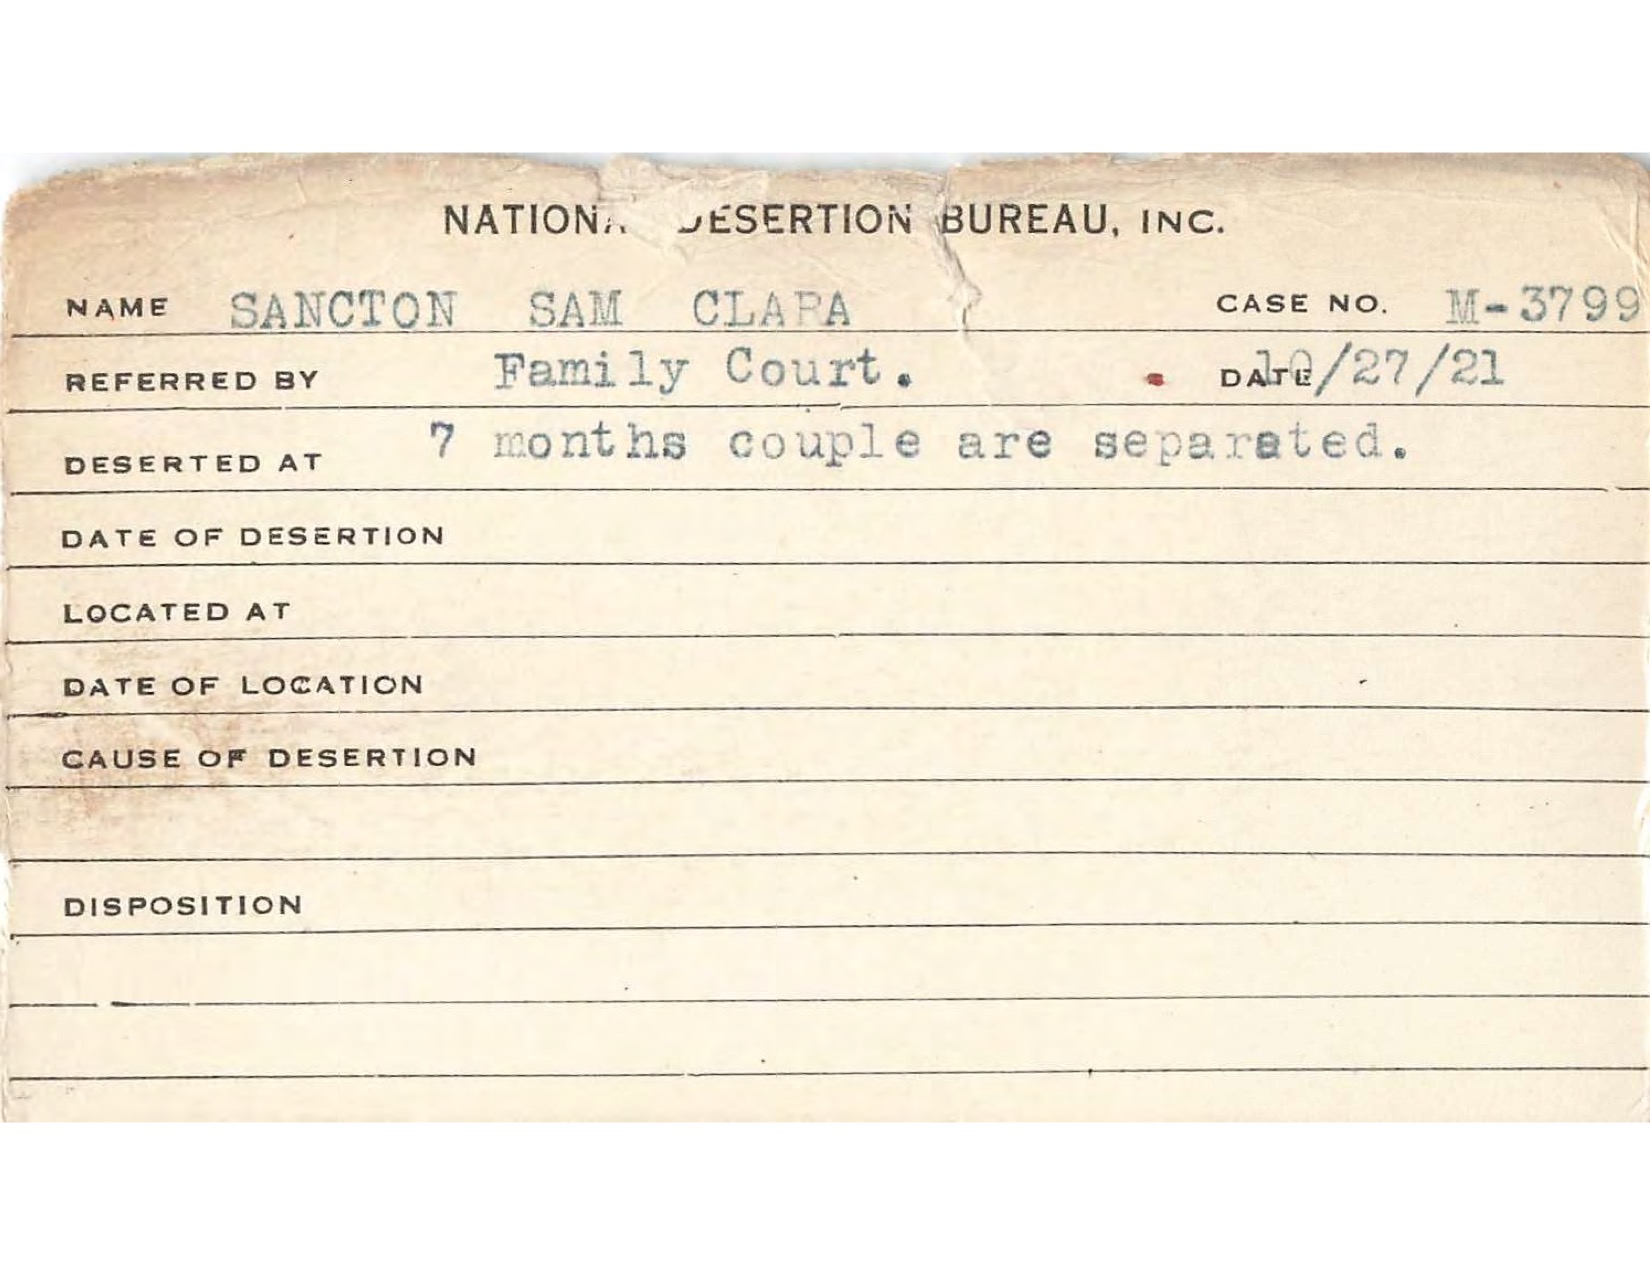 NATIONAL DESERTION BUREAU, INC.
NAME SANCTON SAM CLARA CASE NO. M-3799
REFERRED BY Family Court. DATE 10/27/21
DESERTED AT 7 months couple are separated.
DATE OF DESERTION
LOCATED AT
DATE OF LOCATION
CAUSE OF DESERTION
DISPOSITION